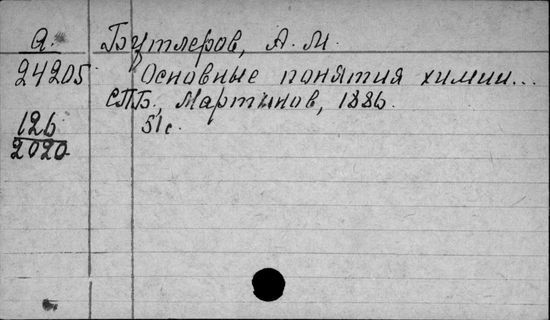 а. Бутлеров, А. М.
24205 Основные понятия химии...
СПБ., Мартынов, 1886.
126 51с.
2020